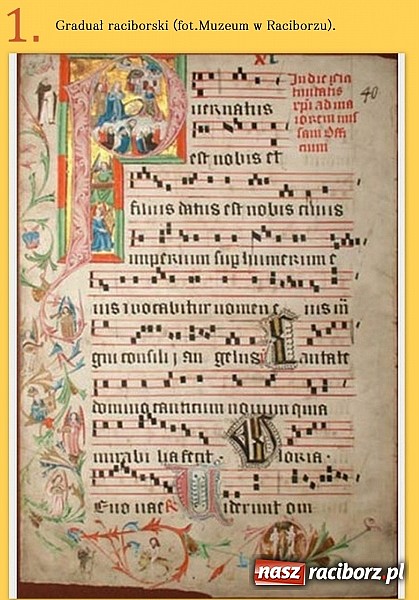 1. Graduał raciborski (fot.Muzeum w Raciborzu).
40
In die
ad ma
iorem mis
sam Offi
cium
P
uer natus
est nobis et
filius datus est nobis cuius
imperium sup humerum e
ius et vocabitur nomen e ius m
gni consilij an gelus Cantate
domino canticum novum quia
mirabi lia fecit Gloria
Euo uae Viderunt om
nasz raciborz.pl